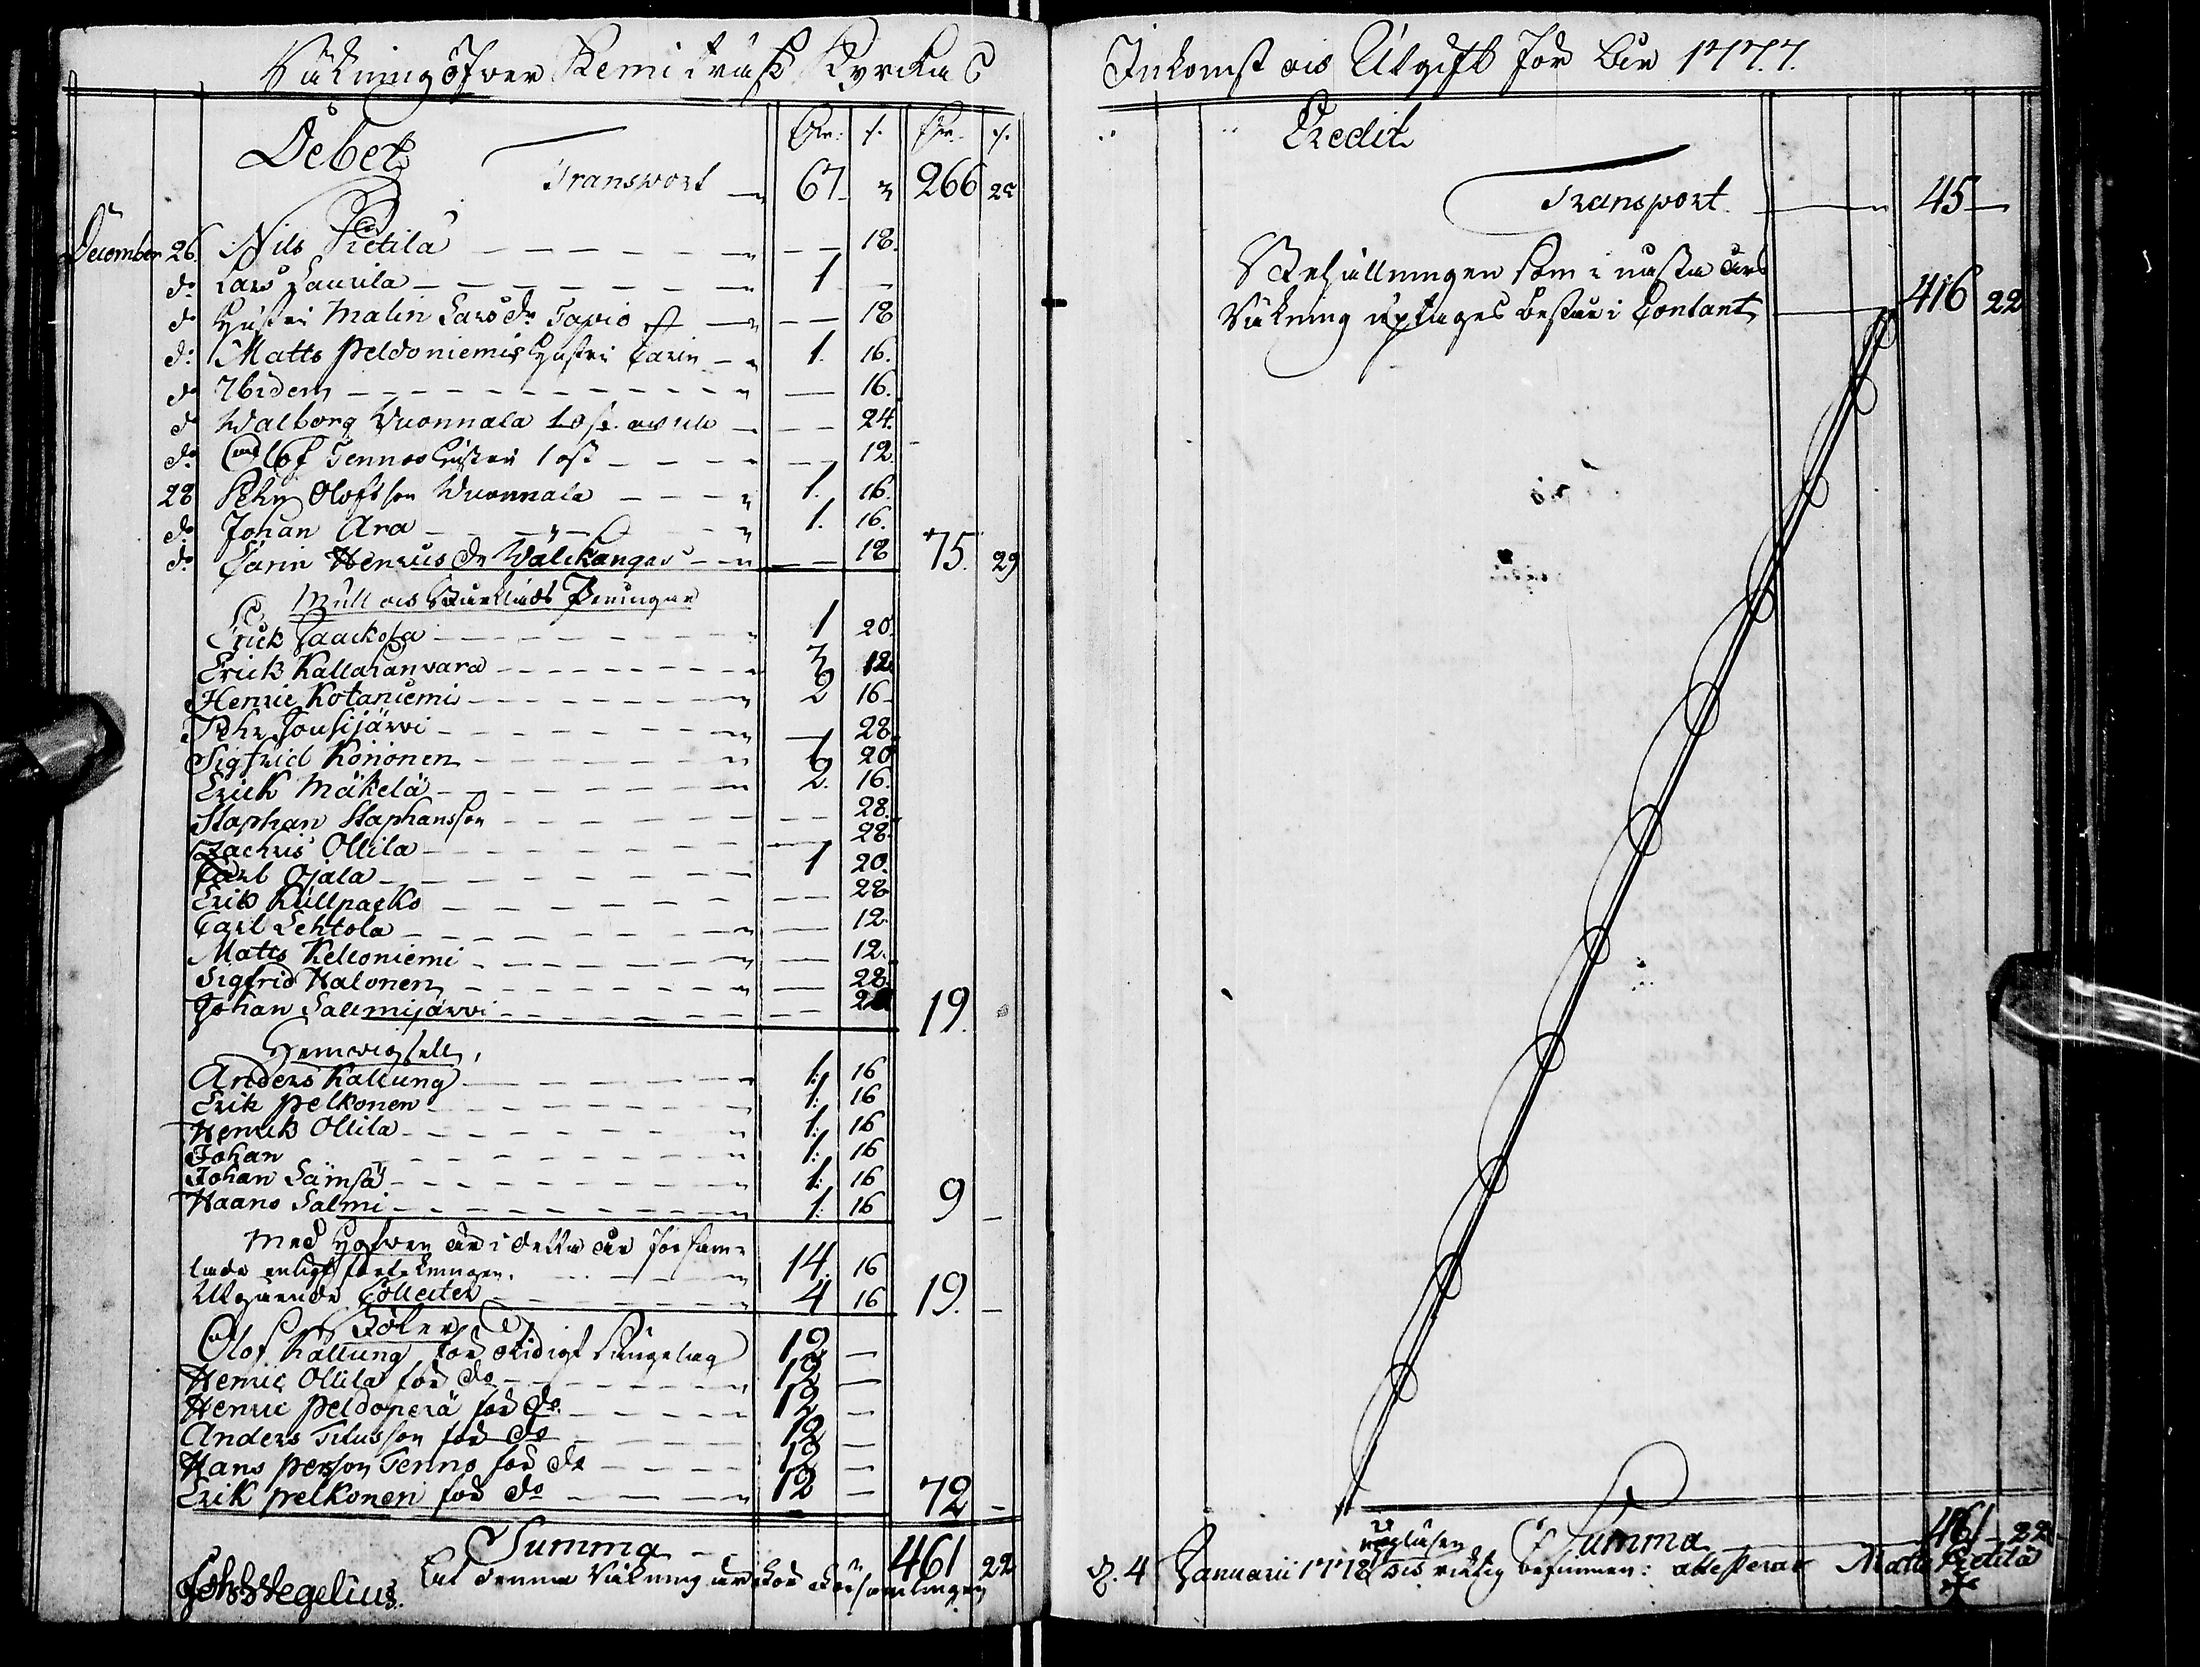 Räkning öfwer Kemi träsk Kyrckas
Debet
Transport 67 266
December 26. Nils Pietilä 18.
do Lars Laurila 1
do Hustru Malin Lars dr Tapio 18
do Matts Peldoniemis Hustru Carin 1. 16.
do Ibidem 16.
do Walborg Wuonnala 24.
do Olof Tennos Hustru 12.
28 Pehr Olofsson Wuonnala 1. 16.
do Johan Ara 1. 16.
do Carin Henrics dr Wälckangas 18 75. 29
Mull och Penningar
Erick Jaackola 1 20.
Erick Kallatanvara 3 12
Henric Kotaniemi 2 16
Pehr Jousijärvi 28
Sigfrid Könönen 1 20
Erick Mäkelä 2. 16.
Staphan Staphansson 28.
Zachris Ollila 28.
Carl Ojala 1 20.
Erik Kullpacko 28
Carl Lehtola 12.
Matts Kelloniemi 12.
Sigfrid Halonen 28.
Johan Salmijärvi 19.
Hemwigsell
Anders Kallung 1: 16
Erik Pelkonen 1: 16
Henrik Ollila 1: 16
Johan 1: 16
Johan Sämsä 1: 16
Haans Salmi 1: 16 9
Med Håfwen är i detta år försam-
lade enligt 14. 16
Utgående Collecter 4 16 19.
Böter
Olof Kallung för otidigt sängelag 12
Henric Ollila för do 12
Henric Peldoperä för do 12
Anders Titusson för do 12
Hans Persson Tenno för do 12
Erik Pelkonen för do 12 72
Summa 461 22
Joh: Wegelius. at denna Räkning är för Församlingen
Inkomst och Utgift för året 1777.
Credit
Transport 45
Behållningen som i nästa års
Räkning uptages består i Contant 416 22
Summa 461 22
upläsen
d. 4 Januarii 1778 och riktig befunnen: attesterar Matts Pietilä